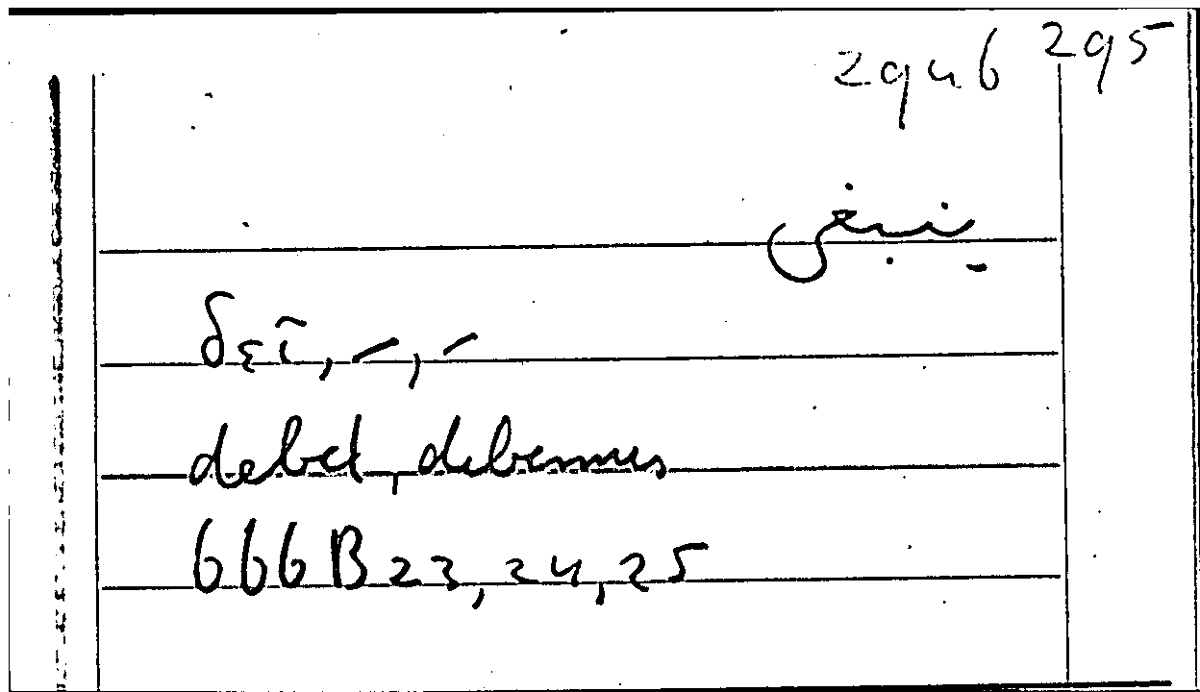 2946 295
ينبغى
δεῖ, –, –
debet, debemus
666 B 23, 24, 25